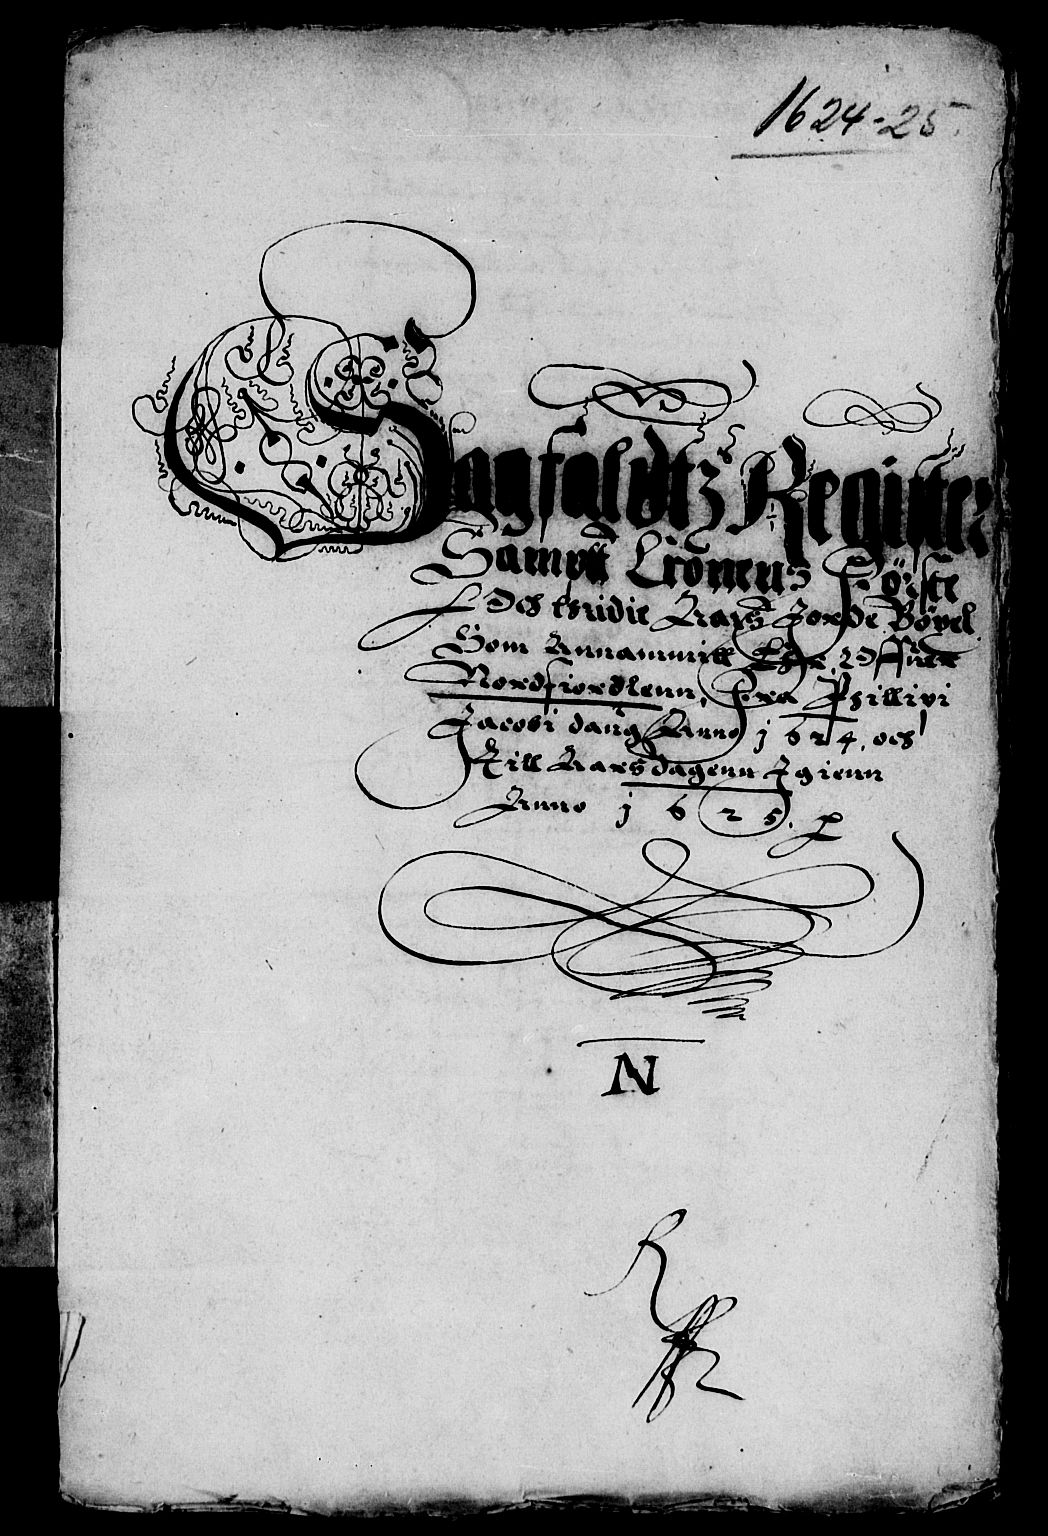 1624-25.
Sagfaldtz Register
Sampt Cronens Förste
och thridie Aars Jorde Bøxel
Som Annammitt Ehr Offuer
Nordfiordlenn, Fra Phillipi
Jacobi daug Anno 1624, och
Till Aarsdagenn Igienn
Anno 1625.
N